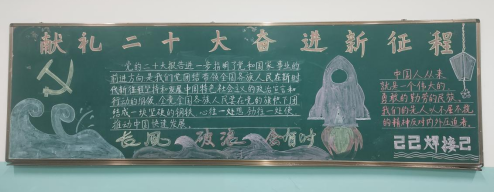 献礼二十大奋进新征程
党的二十大报告进一步指明了党和国家事业的
前进方向是我们党团结带领全国各族人民在新时
代新征程坚持和发展中国特色社会主义的政治宣言和
行动的指领,全党全国各族人民要在党的旗帜下团
结成一块坚硬的钢铁,心往一处想,劲往一处使
推动中国快速发展。
中国人从来
就是一个伟大的
勇敢的勤劳的民族。
我们的是人从不屈不挠
的精神反对内外压迫者。
长风破浪会有时
己己焊接己